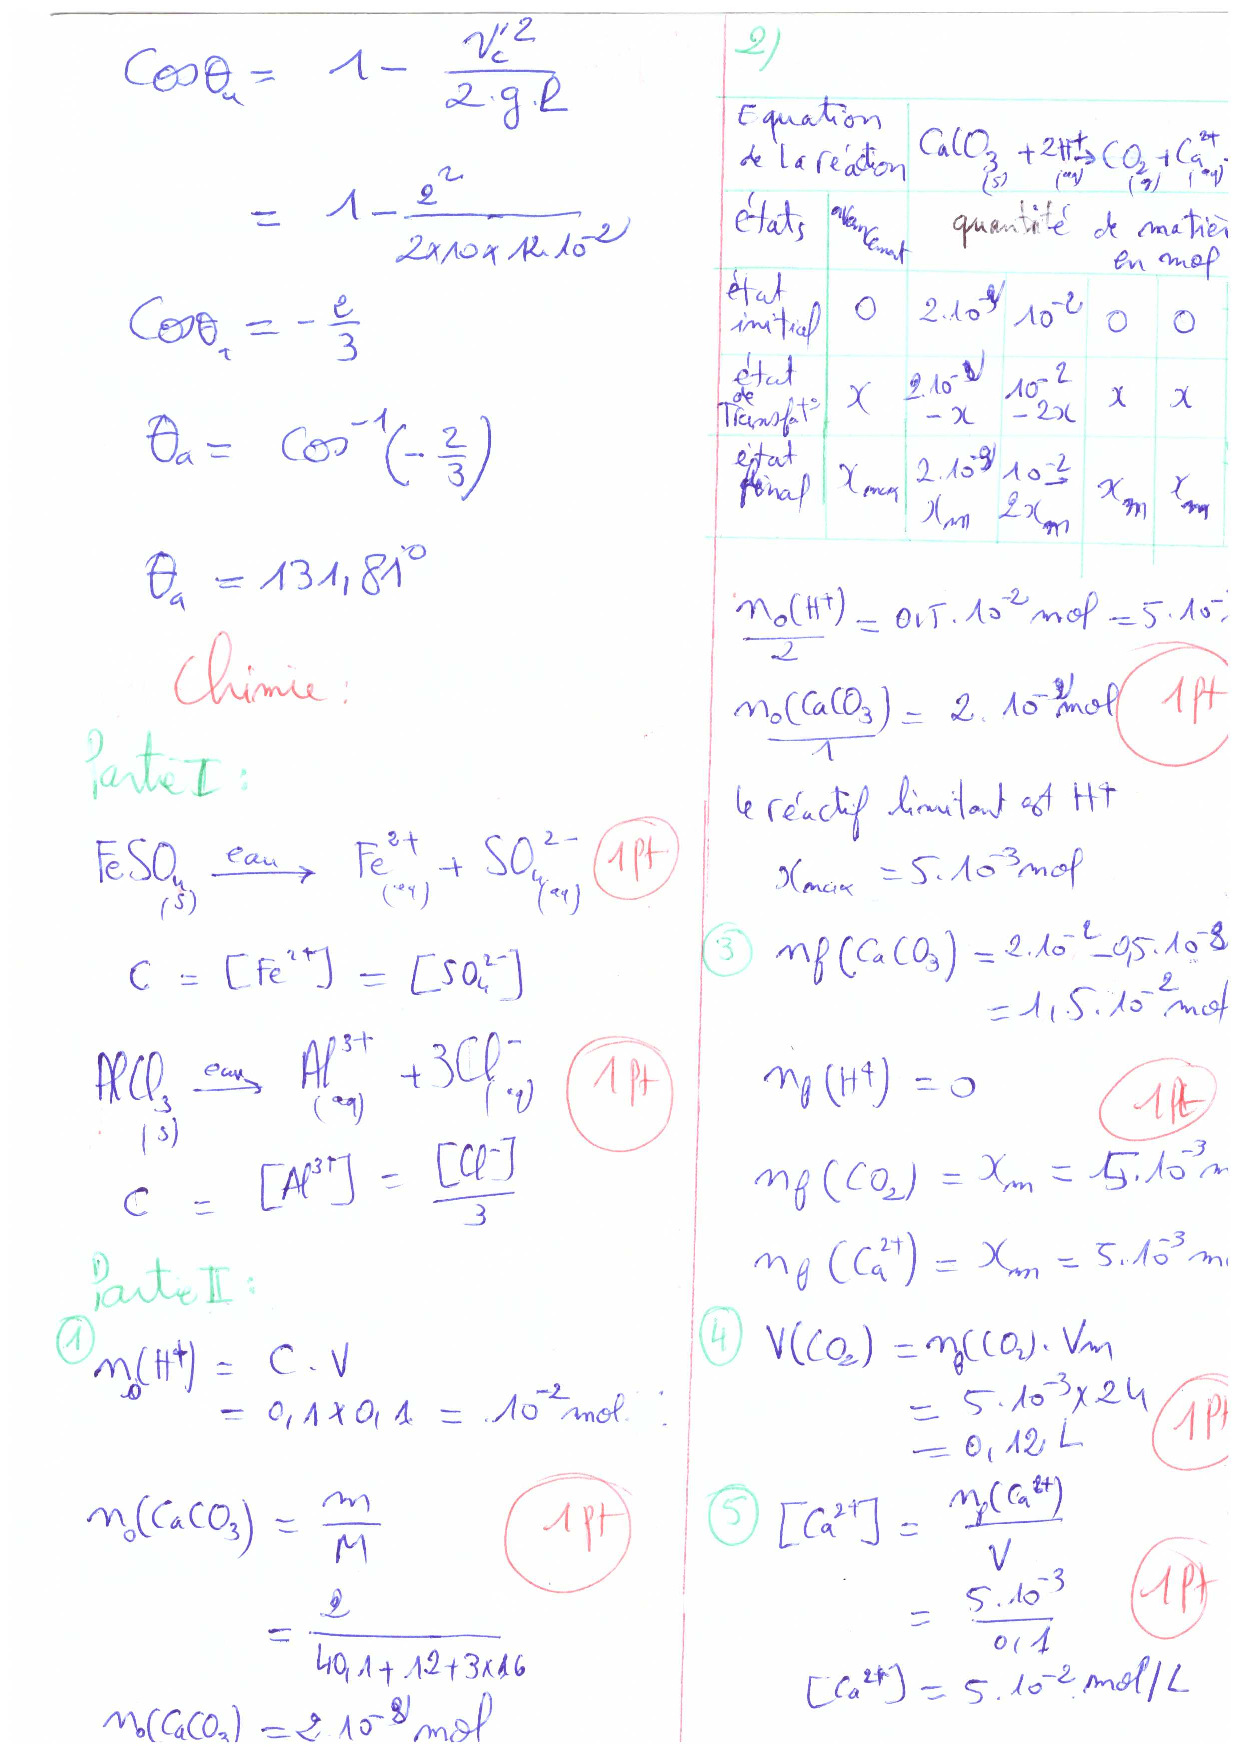 Cosθu = 1 - Vc'² / 2.g.R
= 1 - 2² / 2×10×12.10⁻²
Cosθ = - 2/3
θa = Cos⁻¹(- 2/3)
θa = 131,81°
Chimie :
Partie I :
FeSO₄ (s) eau → Fe²⁺ (aq) + SO₄²⁻ (aq) 1 Pt
C = [Fe²⁺] = [SO₄²⁻]
AlCl₃ (s) eau → Al³⁺ (aq) + 3Cl⁻ (aq) 1 Pt
C = [Al³⁺] = [Cl⁻] / 3
Partie II :
1 n₀(H⁺) = C . V
= 0,1 × 0,1 = 10⁻² mol
n₀(CaCO₃) = m / M 1 Pt
= 2 / 40,1 + 12 + 3×16
n₀(CaCO₃) = 2.10⁻² mol
2)
Equation de la réaction CaCO₃ (s) + 2H⁺ (aq) → CO₂ (g) + Ca²⁺ (aq)
états avancement quantité de matièr en mol
état initial 0 2.10⁻² 10⁻² 0 0
état de Transfat° x 2.10⁻² - x 10⁻² - 2x x x
état final xmax 2.10⁻² - xm 10⁻² - 2xm xm xm
n₀(H⁺) / 2 = 0,5.10⁻² mol = 5.10⁻
n₀(CaCO₃) / 1 = 2.10⁻² mol 1 Pt
le réactif limitant est H⁺
xmax = 5.10⁻³ mol
3 nf(CaCO₃) = 2.10⁻² - 0,5.10⁻²
= 1,5.10⁻² mol
nf(H⁺) = 0 1 Pt
nf(CO₂) = xm = 5.10⁻³ m
nf(Ca²⁺) = xm = 5.10⁻³ m
4 V(CO₂) = nf(CO₂) . Vm
= 5.10⁻³ × 24 1 Pt
= 0,12 L
5 [Ca²⁺] = nf(Ca²⁺) / V
= 5.10⁻³ / 0,1 1 Pt
[Ca²⁺] = 5.10⁻² mol/L